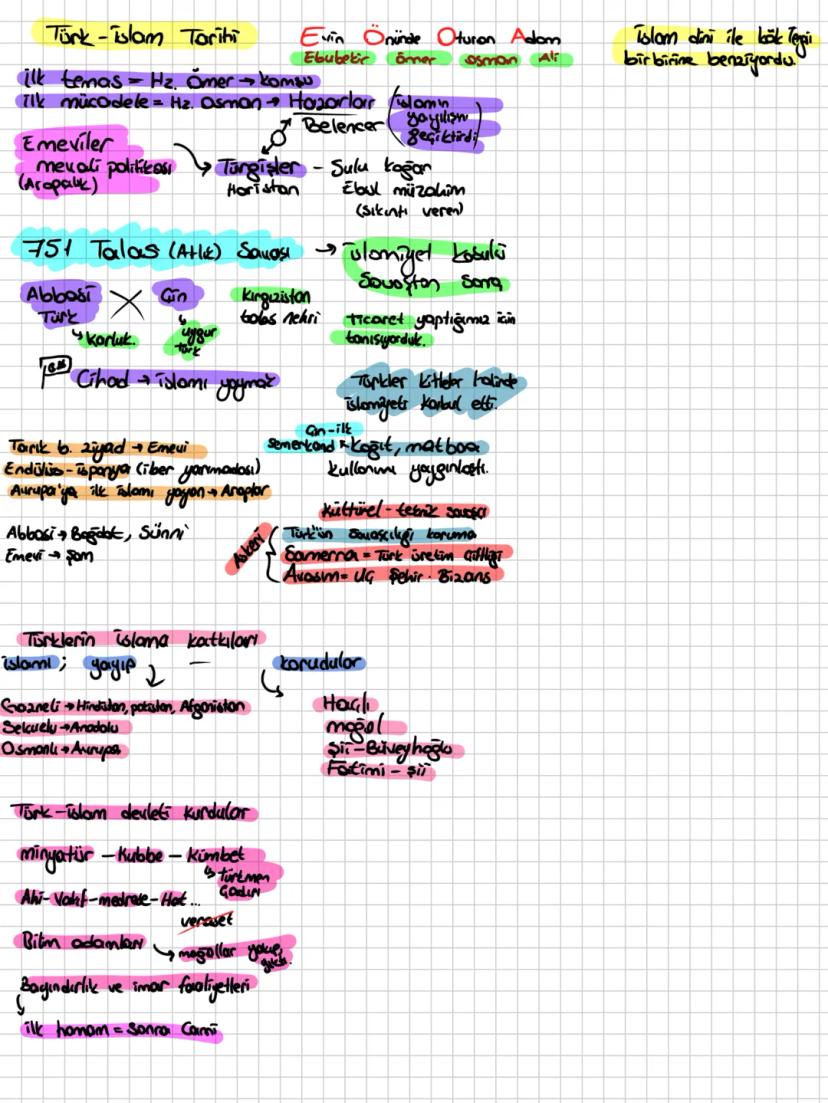 Türk-islam Tarihi
Evin Önünde Oturan Adam
Ebubekir ömer osman Ali
islam dini ile kök tengri
birbirine benziyordu.
ilk temas = Hz. Ömer → komşu
ilk mücadele = Hz. Osman → Hazarlar
Belencer
(islamın
yayılışını
geciktirdi)
Emeviler
mevali politikası
(Arapçılık)
Türgişler - Sulu kağan
Horistan Ebul müzahim
(sıkıntı veren)
751 Talas (Atlık) Savaşı → islamiyet kabulü
Savaştan sonra
Abbasi X Çin
Türk
Karluk.
uygur
türk
Kırgızistan
talas nehri
ticaret yaptığımız için
tanışıyorduk.
Cihad → islamı yaymak
Türkler kitleler halinde
islamiyeti kabul etti.
Çin-ilk
Semerkand = kağıt, matbaa
kullanımı yaygınlaştı.
Tarık b. ziyad → Emevi
Endülüs - ispanya (iber yarımadası)
Avrupa'ya ilk islamı yayan → Araplar
Kültürel - teknik savaşı
Abbasi → Bağdat, Sünni
Emevi → şam
Askeri
Türk'ün savaşçılığı koruma
Samerra = Türk üretim çiftliği
Avasım = Uç Şehir - Bizans
Türklerin islama katkıları
islamı; yayıp — korudular
Gazneli → Hindistan, pakistan, Afganistan
Selcuklu → Anadolu
Osmanlı → Avrupa
Haçlı
moğol
Şii - Büveyhoğlu
Fatimi - şii
Türk-islam devleti kurdular
minyatür - Kubbe - Kümbet
türkmen
Çadırı
Ahi - Vakıf - medrese - Hat ...
veraset
Bilim adamları → moğollar yakıp,
Bayındırlık ve imar faaliyetleri
ilk hamam = sonra Cami